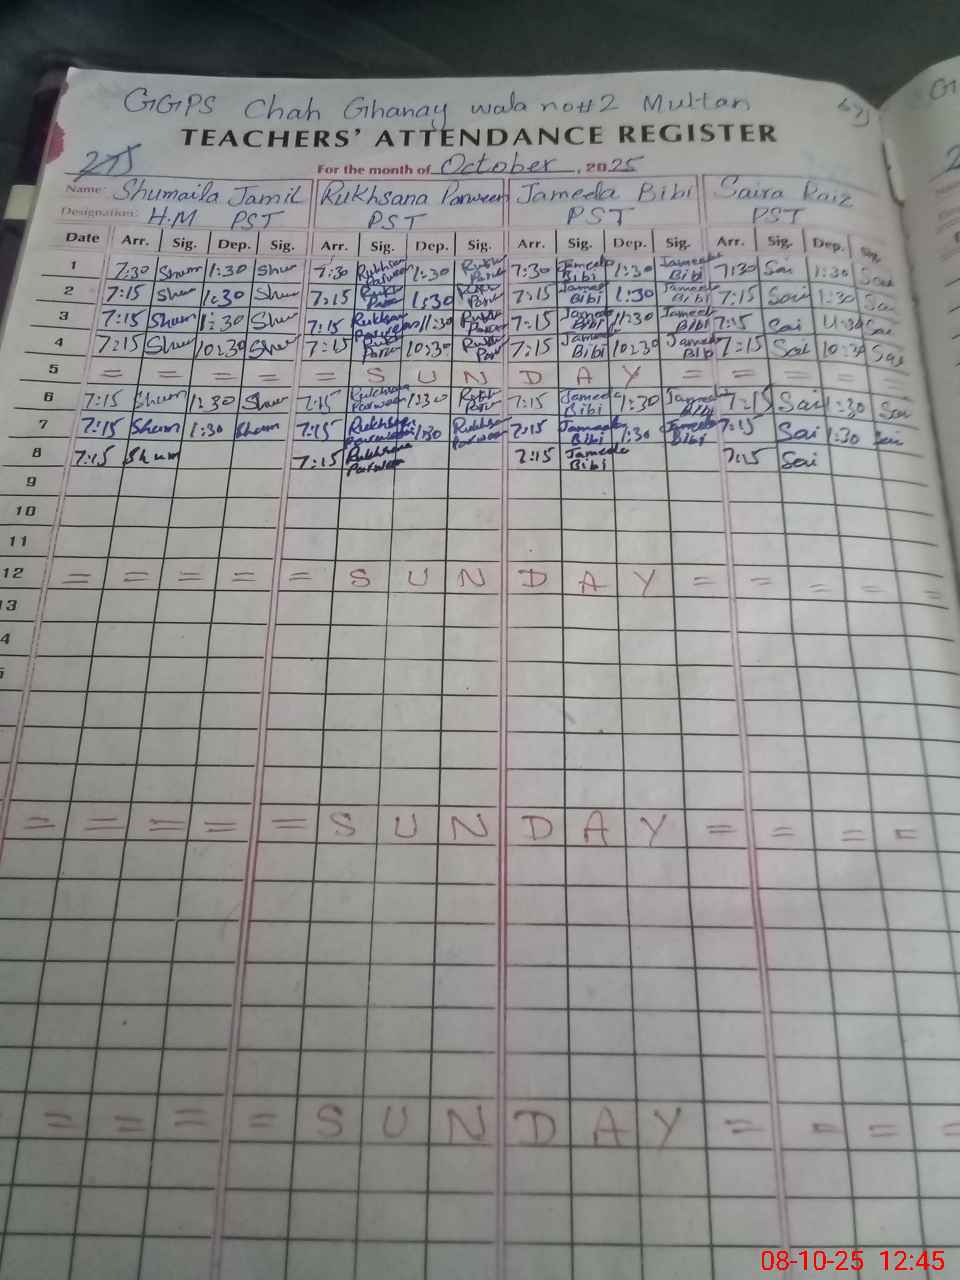 GGPS Chah Ghanay wala no#2 Multan
TEACHERS' ATTENDANCE REGISTER
For the month of October, 2025
Name: Shumaila Jamil Rukhsana Parween Jameela Bibi Saira Raiz
Designation: H.M PST PST PST PST
Date Arr. Sig. Dep. Sig. Arr. Sig. Dep. Sig. Arr. Sig. Dep. Sig. Arr. Sig. Dep. Sig.
1 7:30 Shum 1:30 Shu 7:30 Rukhsan Parween 1:30 Rukh Parw 7:30 Jameela Bibi 1:30 Jameela Bibi 7:30 Sai 1:30 Sai
2 7:15 Shu 1:30 Shu 7:15 Rukh Parw 1:30 Parw 7:15 Jameela Bibi 1:30 Jameela Bibi 7:15 Sai 1:30 Sai
3 7:15 Shum 1:30 Shu 7:15 Rukhsan Parween 11:30 Rukh Parween 7:15 Jameela Bibi 11:30 Jameela Bibi 7:15 Sai 11:30 Sai
4 7:15 Shu 10:30 Shu 7:15 Rukh Parw 10:30 Rukh Par 7:15 Jameela Bibi 10:30 Jameela Bib 7:15 Sai 10:30 Sai
5 = = = = = S U N D A Y = = = =
6 7:15 Shum 1:30 Shum 7:15 Rukhsana Parween 1:30 Rukh Parw 7:15 Jameela Bibi 1:30 Jameela Bibi 7:15 Sai 1:30 Sai
7 7:15 Shum 1:30 Shum 7:15 Rukhsana Parween 1:30 Rukhsan Parween 7:15 Jameela Bibi 1:30 Jameela Bibi 7:15 Sai 1:30 Sai
8 7:15 Shum 7:15 Rukhsana Parween 7:15 Jameela Bibi 7:15 Sai
9
10
11
12 = = = = = S U N D A Y = = = = =
13
4
= = = = = S U N D A Y = = = =
= = = = S U N D A Y = = = =
08-10-25 12:45